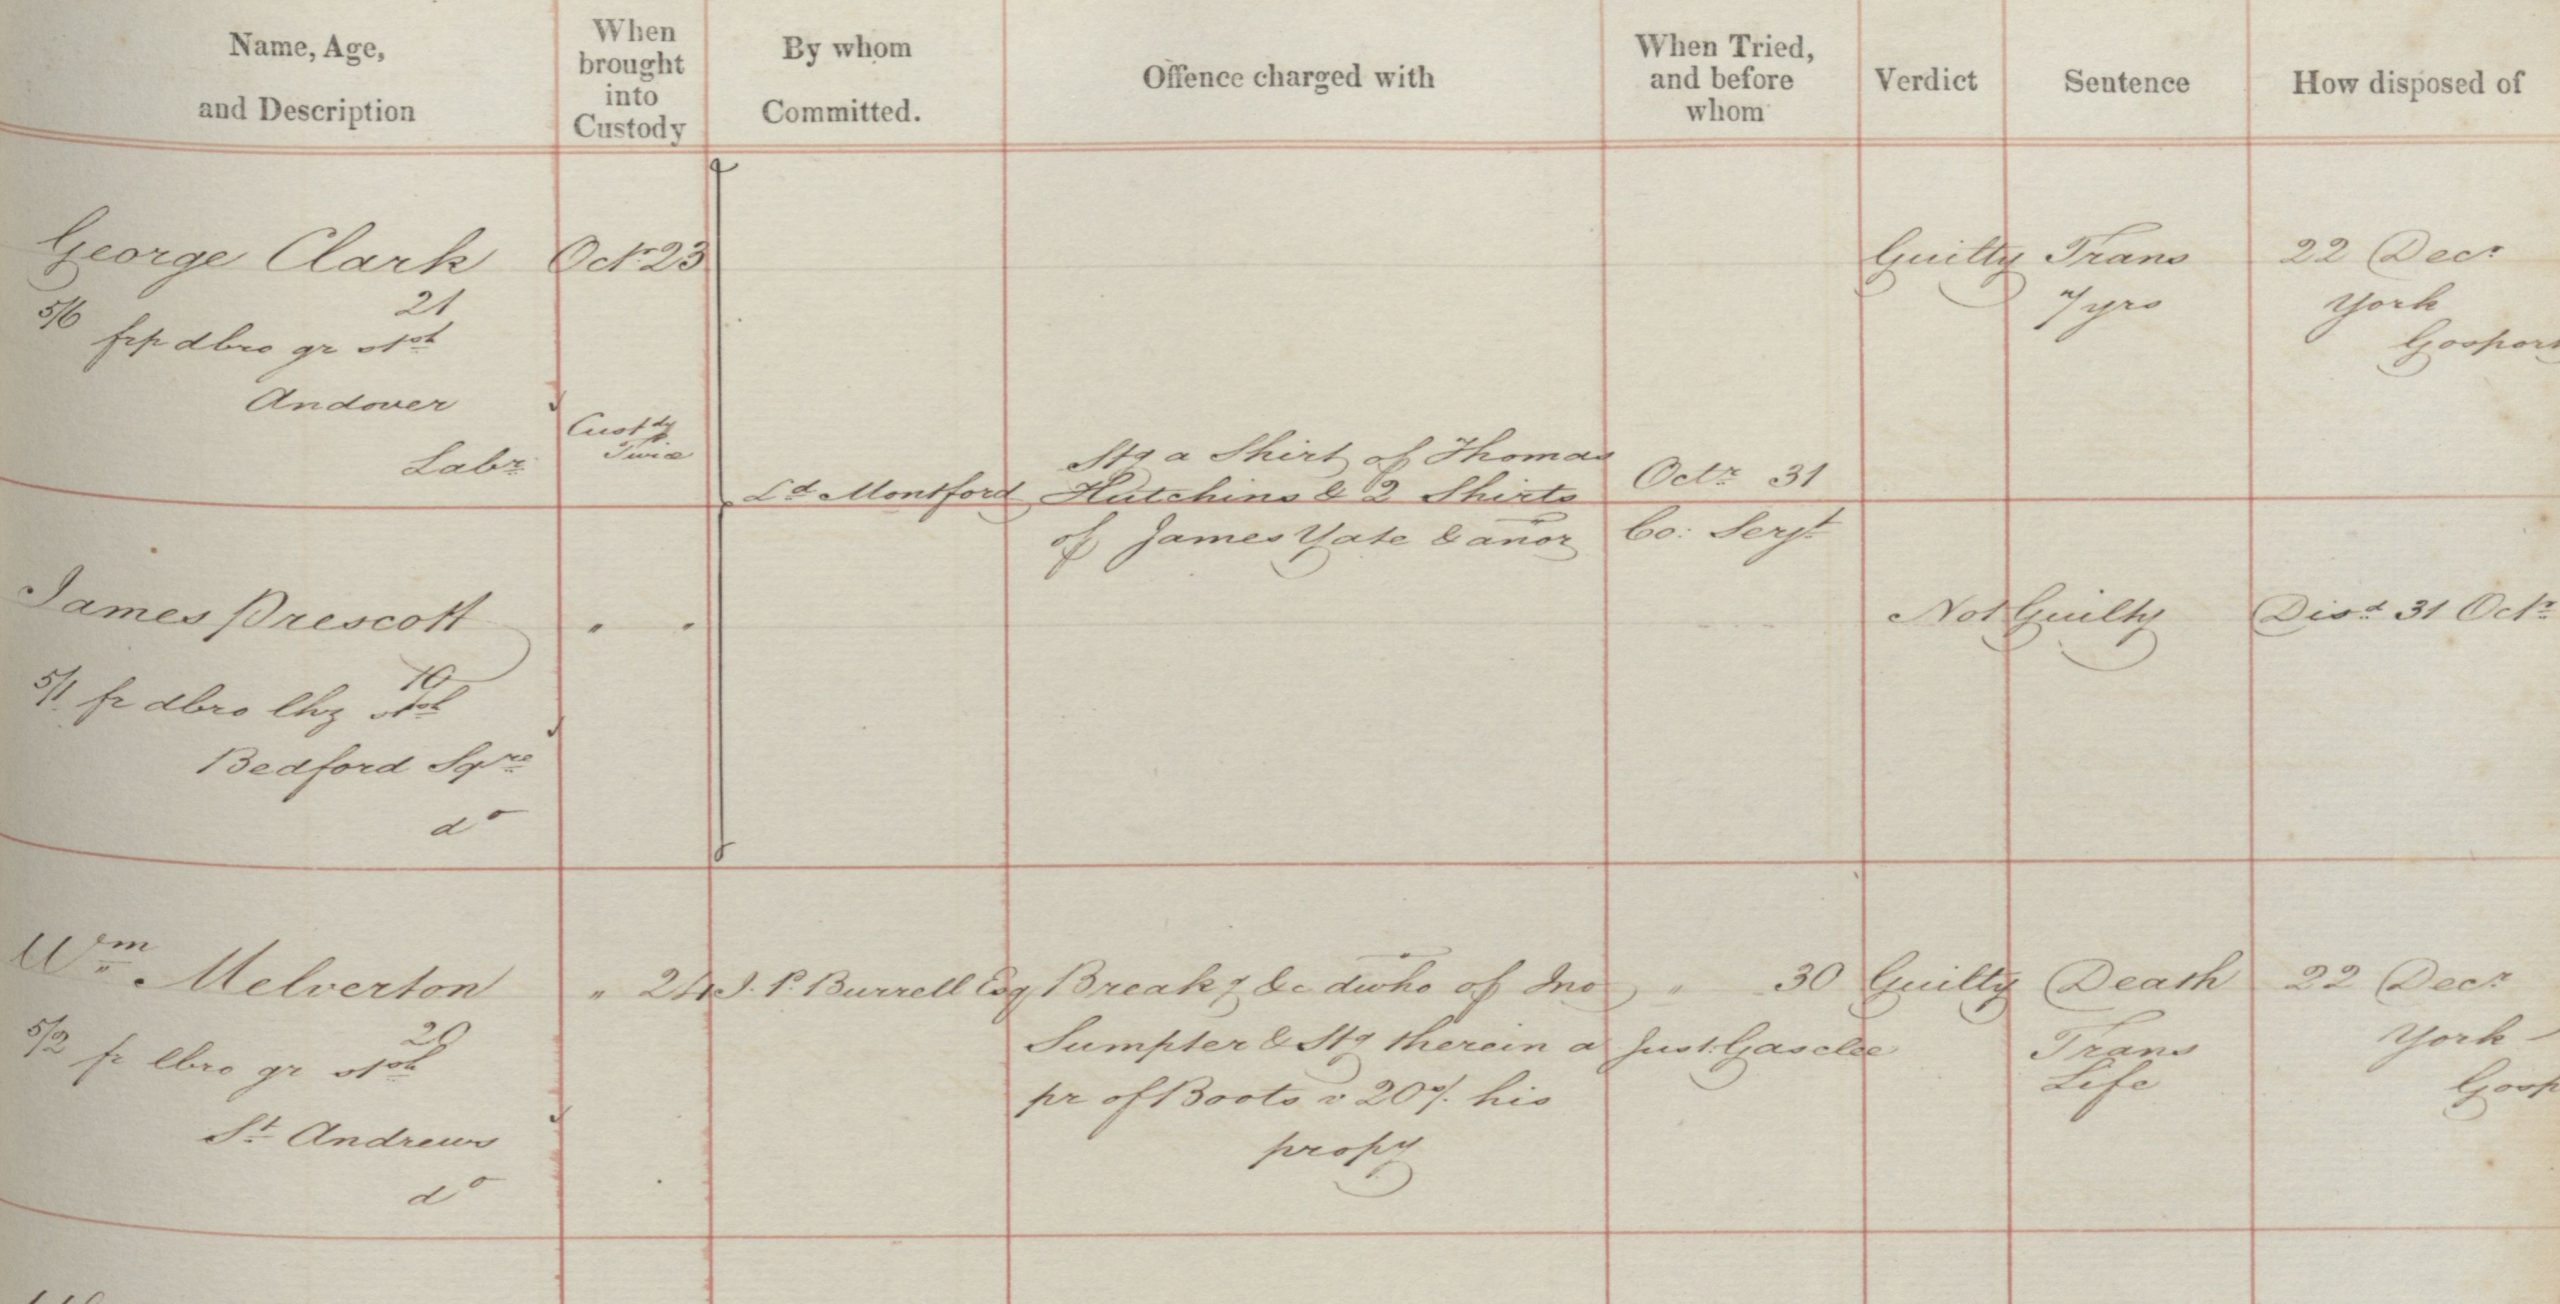 Name, Age,
and Description
When
brought
into
Custody
By whom
Committed.
Offence charged with
When Tried,
and before
whom
Verdict
Sentence
How disposed of
George Clark
21
5/6 frp dbro gr st
Andover
Labr
Octr 23
Custdy
Twice
Ld Montford
Stg a Shirt of Thomas
Hutchins & 2 Shirts
of James Yate & anor
Octr 31
Co: Serjt
Guilty
Trans
7 yrs
22 Decr
York
Gosport
James Prescott
5/1 fr dbro lhz st
Bedford Sqre
do
" "
Not Guilty
Disd 31 Octr
Wm Melverton
20
5/2 fr lbro gr st
St Andrews
do
" 24
J. P. Burrell Esq
Breakg &c dwho of Jno
Sumpter & Stg therein a
pr of Boots v 20/. his
propy
" 30
Just: Gaselee
Guilty
Death
Trans
Life
22 Decr
York
Gosp